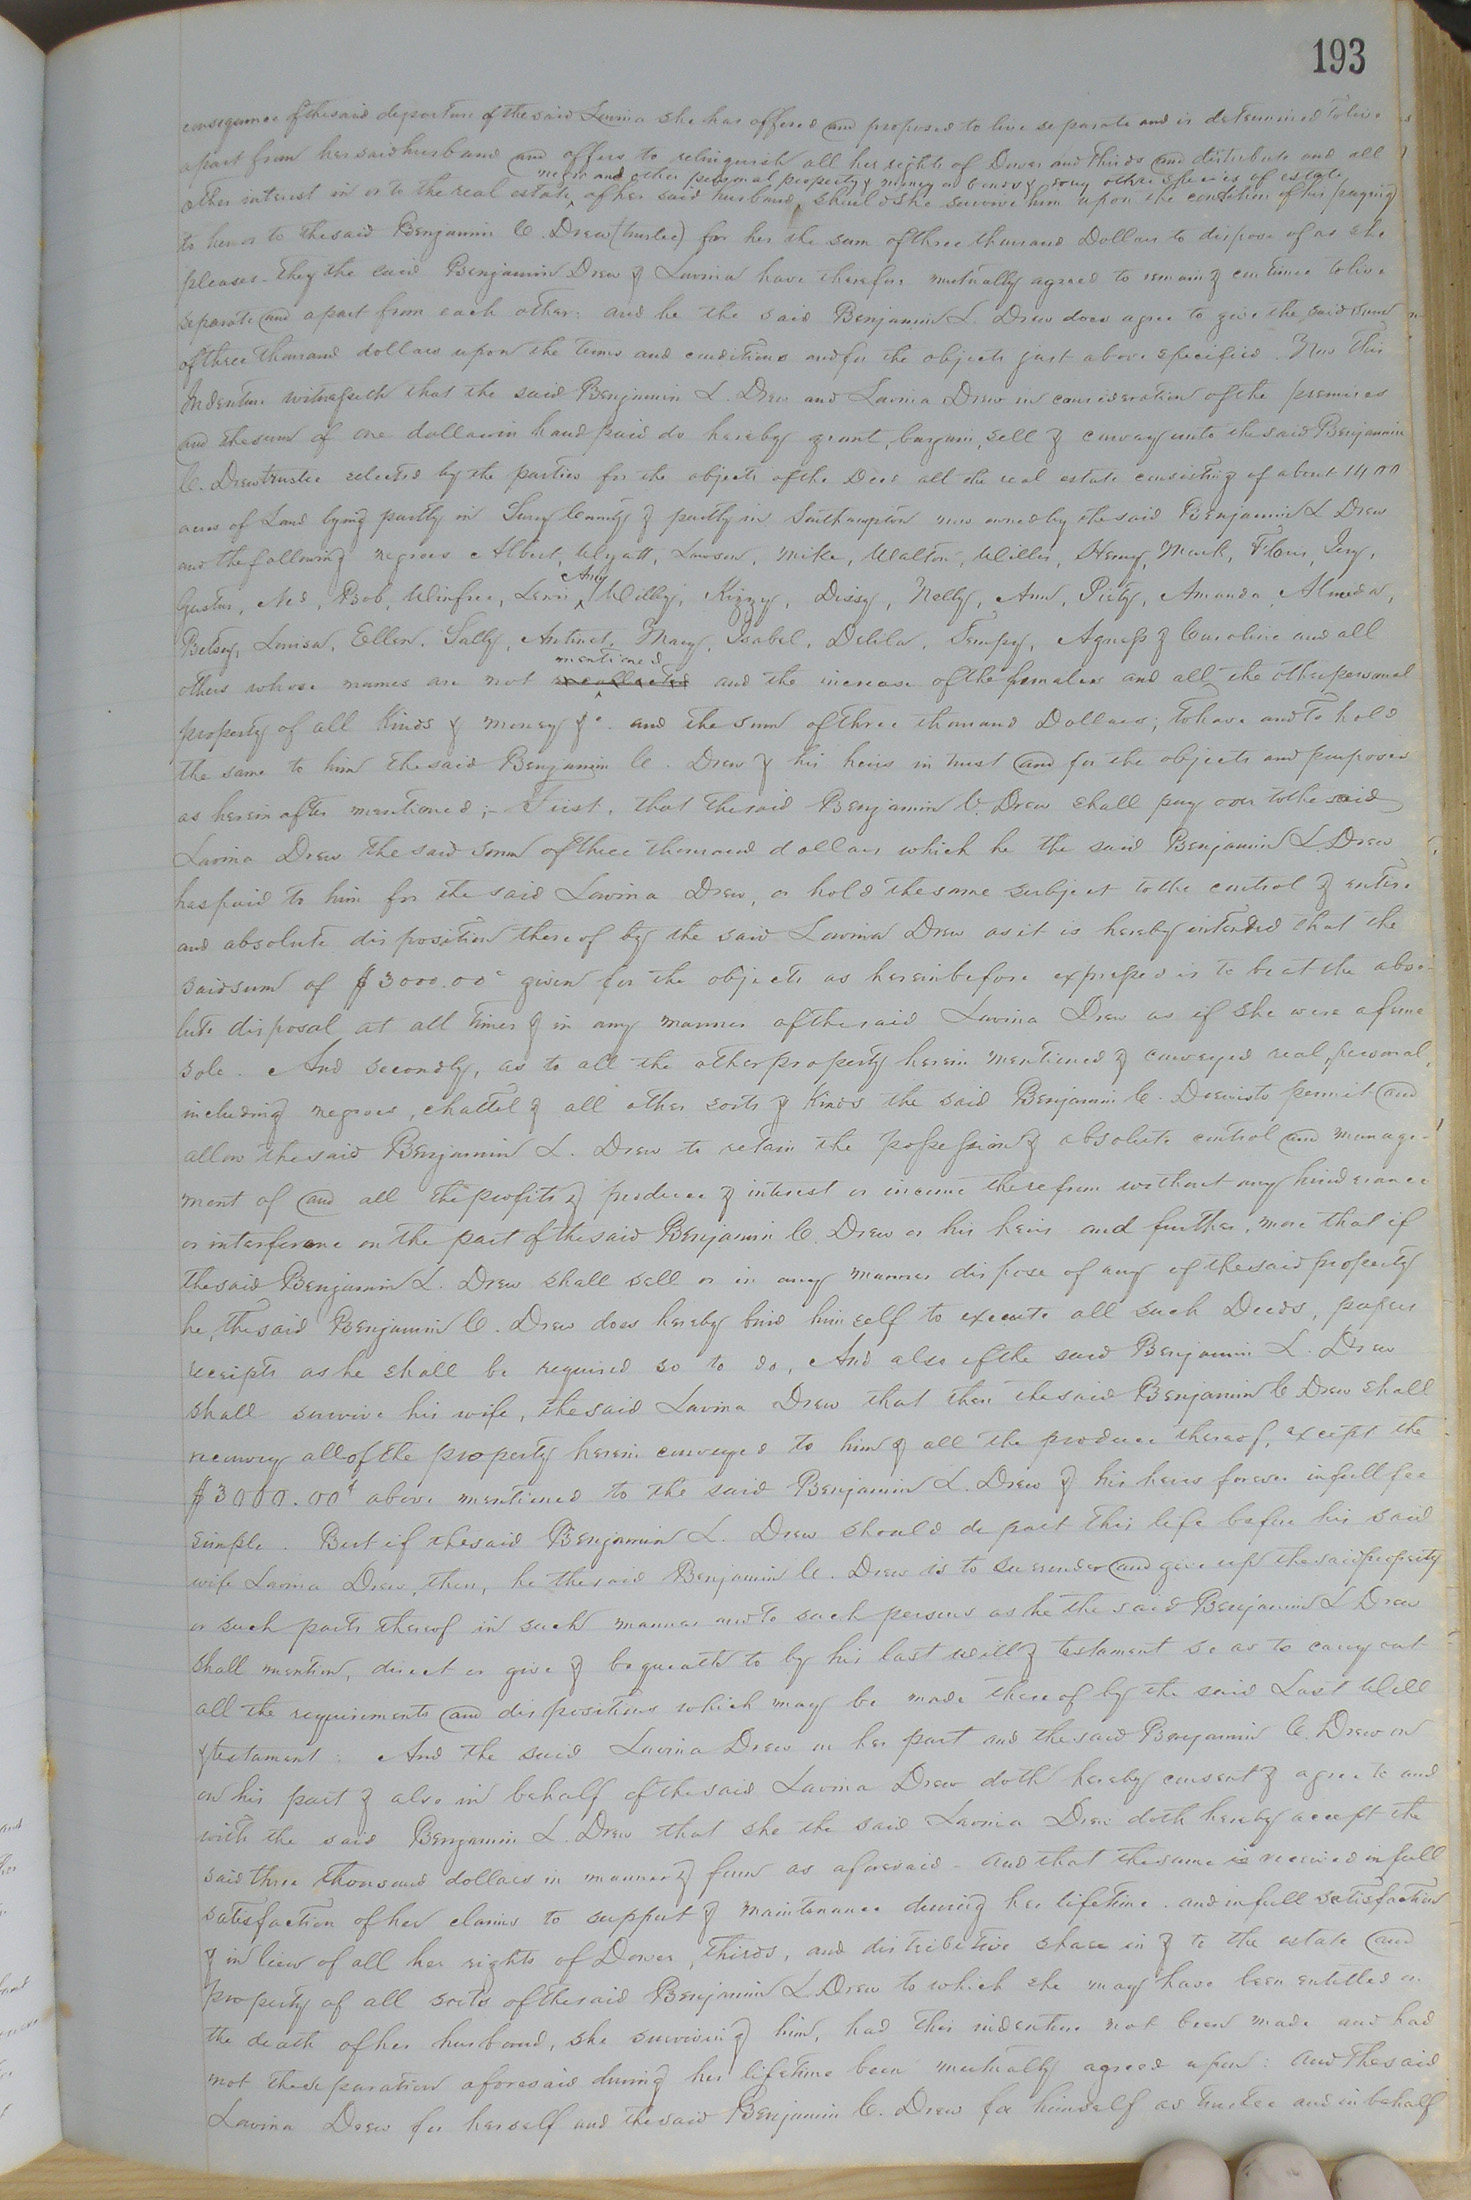 193
consequence of the said departure of the said Lavina she has offered and proposed to live separate and is determined to live
apart from her said husband and offers to relinquish all her rights of Dower and thirds and distribute and all
negro and other personal property & money or bonds & any other species of estate
other interest in or to the real estate of her said husband, should she survive him upon the condition of his paying
to her or to the said Benjamin C. Drew (trustee) for her the sum of three thousand Dollars to dispose of as she
pleases. They the said Benjamin Drew & Lavina have therefore mutually agreed to remain & continue to live
separate and apart from each other: and he the said Benjamin L. Drew does agree to give the said sum
of three thousand dollars upon the terms and conditions and for the objects just above specified. Now this
Indenture witnesseth that the said Benjamin L. Drew and Lavina Drew in consideration of the premises
and the sum of one dollar in hand paid do hereby grant, bargain, sell & convey unto the said Benjamin
C. Drew trustee selected by the parties for the objects of the Deed all the real estate consisting of about 1400
acres of Land lying partly in Surry County & partly in Southampton now owned by the said Benjamin L Drew
and the following negroes Albert, Wyatt, Lawson, Mike, Walton, Willis, Henry, Mark, Jery,
Amy
Gustus, Ned, Bob, Winfree, Lewis, Willby, Kizzy, Dissy, Nelly, Ann, Piety, Amanda, Almeda,
Betsey, Louisa, Ellen, Sally, Mary, Isabel, Delila, Tempy, Agness & Caroline and all
mentioned
others whose names are not recollected and the increase of the females and all the other personal
property of all Kinds & money &c. and the sum of three thousand Dollars; To have and To hold
the same to him the said Benjamin C. Drew & his heirs in trust and for the objects and purposes
as herein after mentioned;- First, that the said Benjamin C. Drew shall pay over to the said
Lavina Drew the said sum of three thousand dollars which he the said Benjamin L. Drew
has paid to him for the said Lavina Drew, or hold the same subject to the control & entire
and absolute disposition thereof by the said Lavina Drew as it is hereby intended that the
said sum of $3000.00c given for the objects as herein before expressed is to be at the abso-
lute disposal at all times & in any manner of the said Lavina Drew as if she were a feme
sole. And secondly, as to all the other property herein mentioned & conveyed real, personal,
including negroes, chattel & all other sorts & Kinds the said Benjamin C. Drew is to permit and
allow the said Benjamin L. Drew to retain the possession & absolute control and manage-
ment of and all the profits & produce & interest or income therefrom without any hinderance
or interference on the part of the said Benjamin C. Drew or his heirs and further more that if
the said Benjamin L. Drew shall sell or in any manner dispose of any of the said property
he, the said Benjamin C. Drew does hereby bind himself to execute all such Deeds, papers
receipts as he shall be required so to do, And also if the said Benjamin L. Drew
shall survive his wife, the said Lavina Drew that then the said Benjamin C Drew shall
reconvey all of the property herein conveyed to him & all the produce thereof, except the
$3000.00c above mentioned to the said Benjamin L. Drew & his heirs forever in full fee
simple. But if the said Benjamin L. Drew should depart this life before his said
wife Lavina Drew, then, he the said Benjamin C. Drew is to surrender and give up the said property
or such parts thereof in such manner and to such persons as he the said Benjamin L Drew
shall mention, direct or give & bequeath to by his last will & testament so as to carry out
all the requirements and dispositions which may be made thereof by the said Last Will
& testament: And the said Lavina Drew on her part and the said Benjamin C. Drew on
on his part & also in behalf of the said Lavina Drew doth hereby consent & agree to and
with the said Benjamin L. Drew that she the said Lavina Drew doth hereby accept the
said three thousand dollars in manner & form as aforesaid - and that the same is received in full
satisfaction of her claims to support & maintenance during her lifetime. and in full satisfaction
& in lieu of all her rights of Dower, thirds, and distributive share in & to the estate and
property of all sorts of the said Benjamin L. Drew to which she may have been entitled on
the death of her husband, she surviving him, had this indenture not been made and had
not the separation aforesaid during her lifetime been mutually agreed upon: And the said
Lavina Drew for herself and the said Benjamin C. Drew for himself as trustee and in behalf